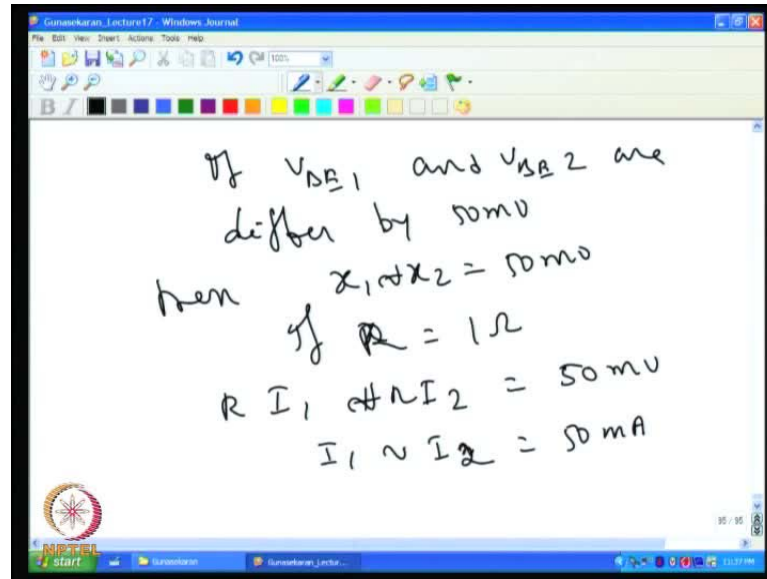 Gunasekaran_Lecture17 - Windows Journal
File Edit View Insert Actions Tools Help
100%
B I
If VBE1 and VBE2 are
differ by 50mV
then x1 ~ x2 = 50mV
If R = 1Ω
R I1 ~ R I2 = 50mV
I1 ~ I2 = 50 mA
95 / 95
NPTEL
start Gunasekaran Gunasekaran_Lectur... 11:37 PM